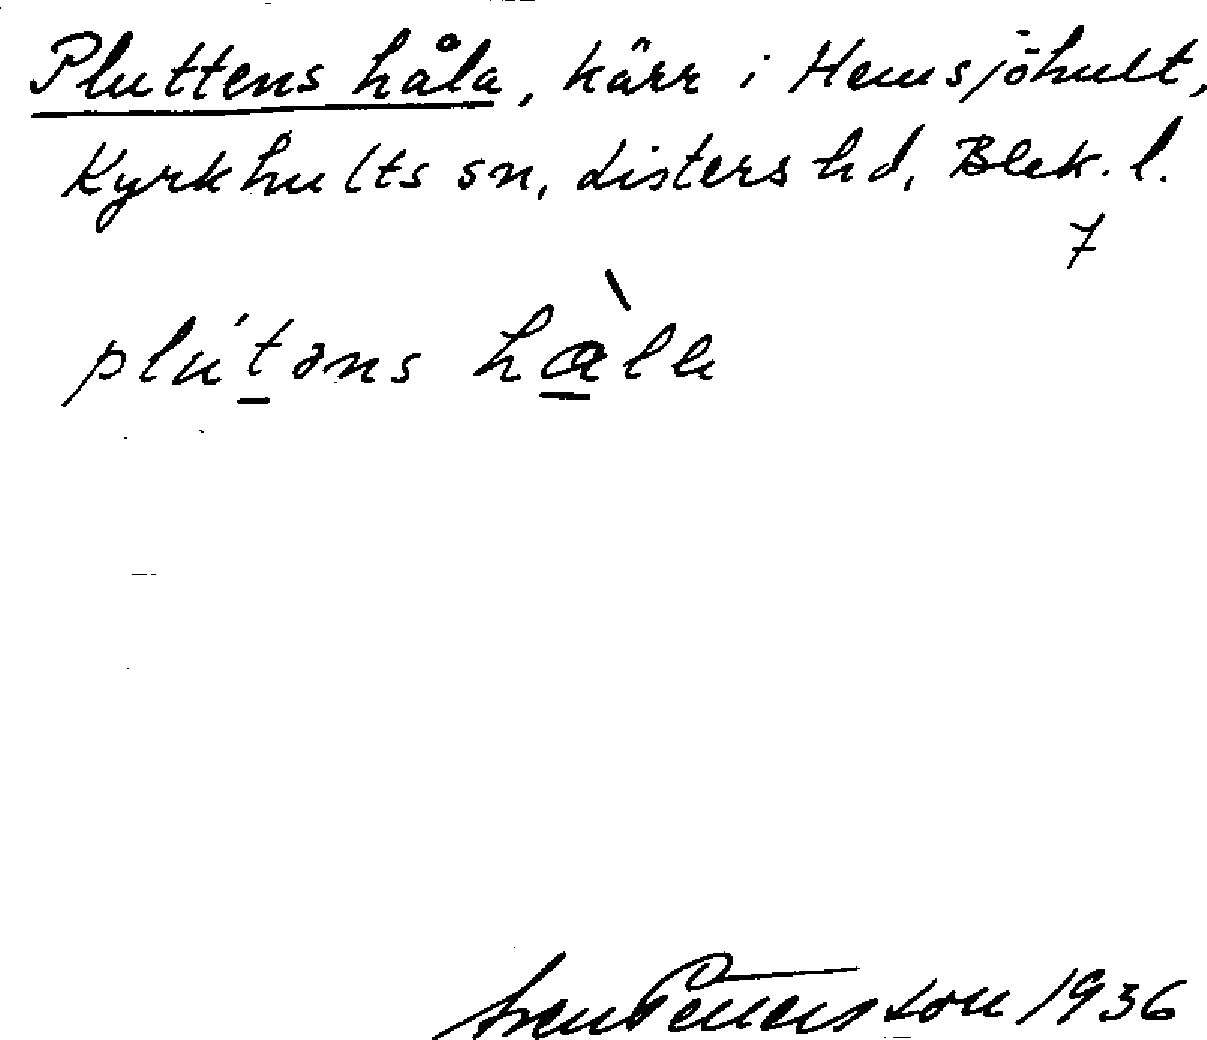 Pluttens håla, kärr i Hemsjöhult,
Kyrkhults sn, Listers hd, Blek. l.
7
plútəns hàla
Sven Petersson 1936